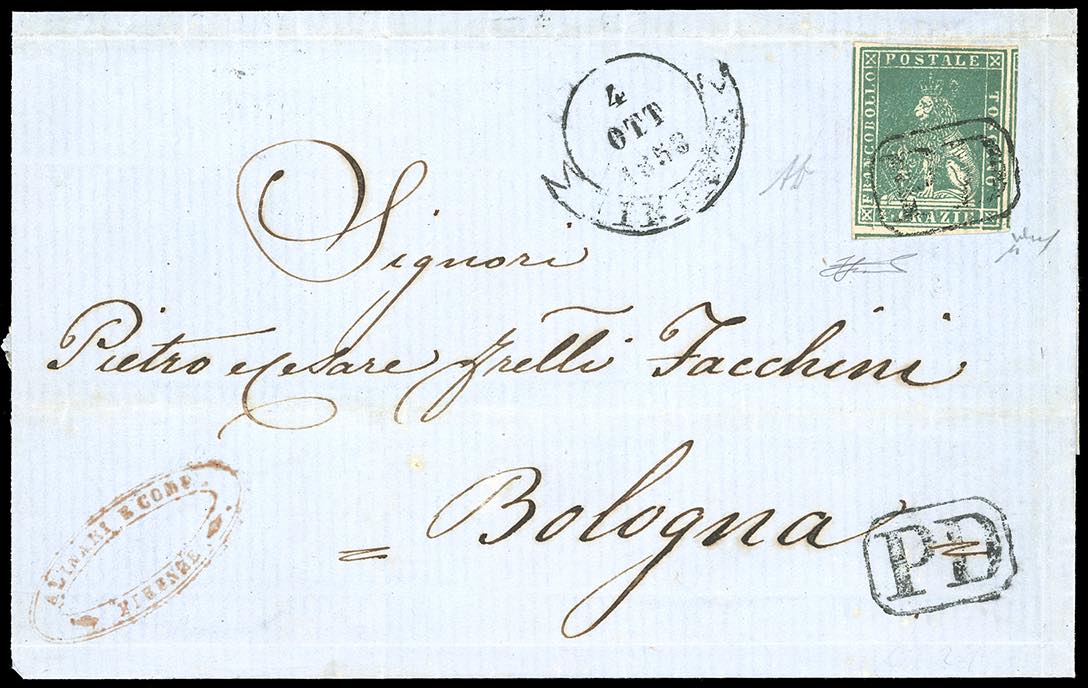 4
OTT
1858
FRANCOBOLLO
POSTALE
TOSCANO
4 CRAZIE
PD
Signori
Pietro e Cesare Frelli Facchini
= Bologna =
PD
ALINARI E COMP.
FIRENZE